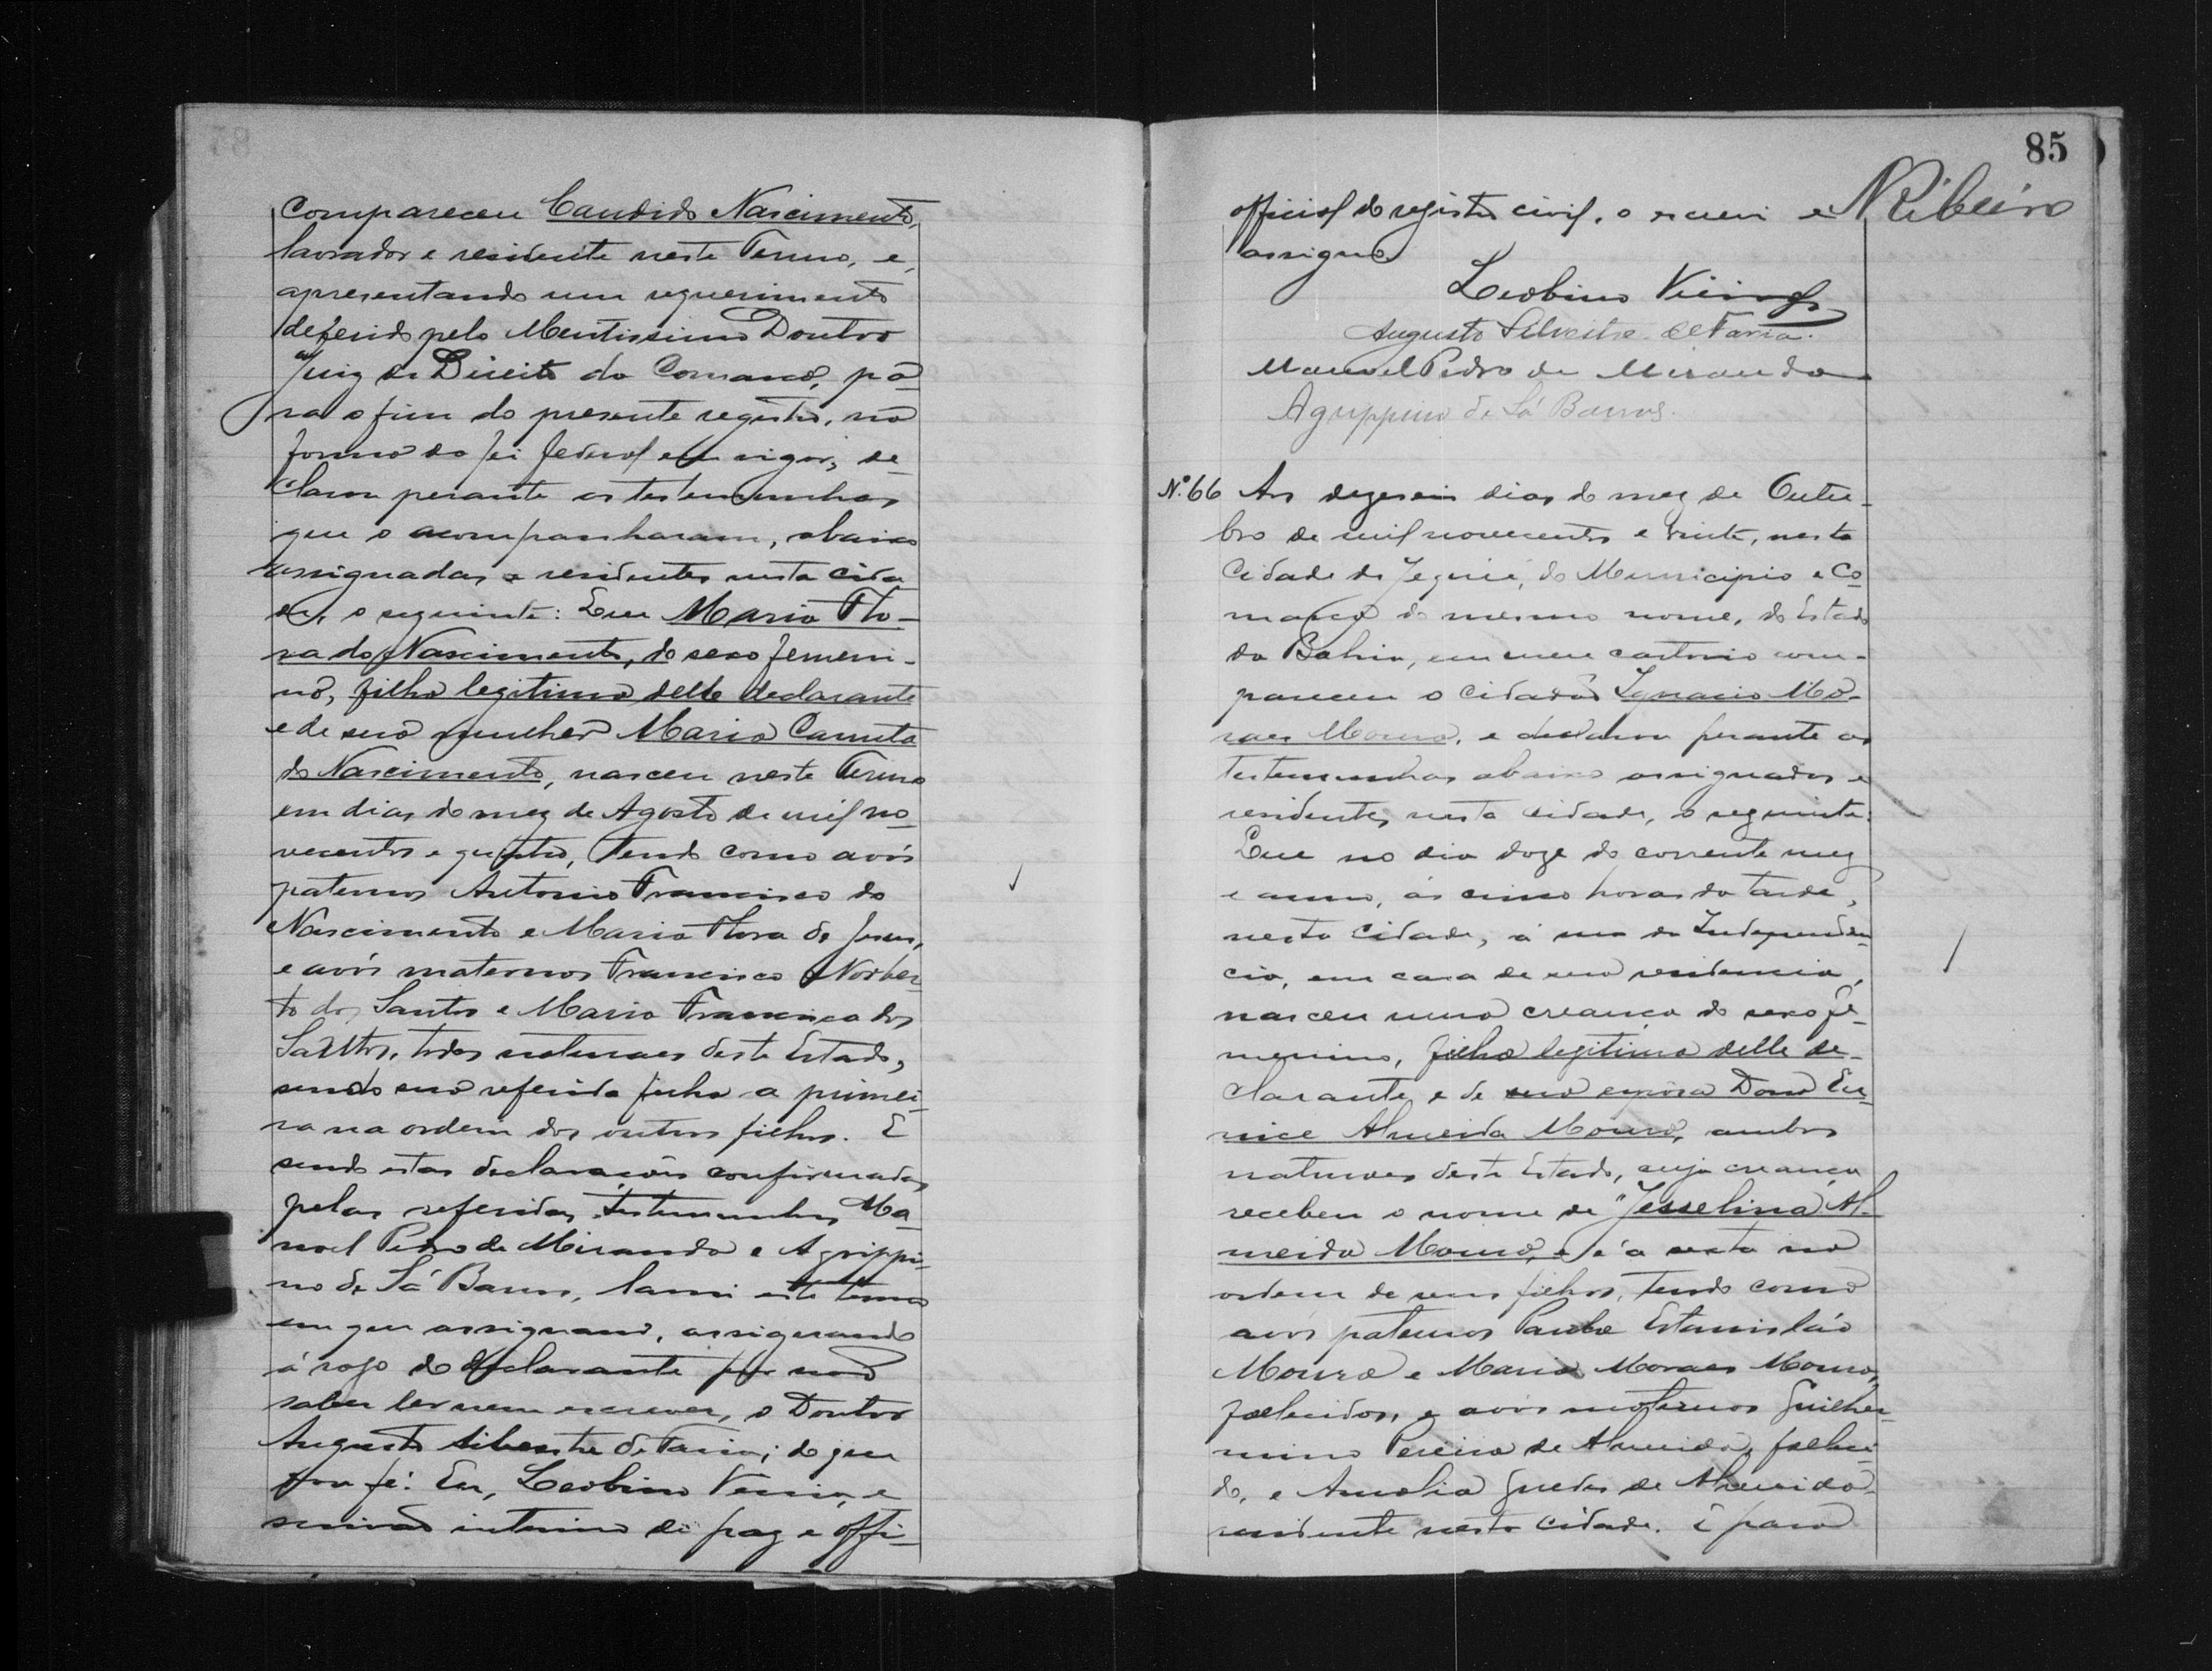 compareceu Candido Nascimento,
lavrador e residente neste Termo, e,
apresentando um requerimento
deferido pelo Meritissimo Doutor
Juiz de Direito da Comarca, pa-
ra o fim do presente registro, na
forma da lei federal em vigor, de-
clarou perante as testemunhas
que o acompanharam, abaixo
assignadas e residentes nesta cida-
de, o seguinte: Que Maria Flo-
ra do Nascimento, do sexo femeni-
no, filha legitima delle declarante
e de sua mulher Maria
do Nascimento, nasceu neste Termo
em dias do mez de Agosto de mil no-
vecentos e quatro, tendo como avós
paternos Antonio Francisco do
Nascimento e Maria Flora de Jesus,
e avós maternos Francisco Norber-
to dos Santos e Maria Francisca dos
Santos, todos naturaes deste Estado,
sendo sua referida filha a primei-
ra na ordem dos outros filhos. E
sendo estas declarações confirmadas
pelas referidas testemunhas Ma-
noel Pedro de Miranda e Agrippi-
no de Sá Barros, lavrei este termo
em que assignam, assignando
á rogo do declarante por não
saber ler nem escrever, o Doutor
Augusto Silvestre de Faria; do que
dou fé. Eu, Leobino Vieira, e
scrivão interino de paz e offi-
85
official do registro civil, o escrevi e NRibeiro
assigno
Leobino Vieira
Augusto Silvestre de Faria.
Manoel Pedro de Miranda
Agrippino de Sá Barros.
Nº 66 Aos dezeseis dias do mez de Outu-
bro de mil novecentos e vinte, nesta
Cidade de Jequié, do Municipio e Co-
marca do mesmo nome, do Estado
da Bahia, em meu cartorio com-
pareceu o cidadão Ignacio Mo-
raes Moura, e declarou perante as
testemunhas abaixo assignadas e
residentes nesta cidade, o seguinte:
Que no dia doze do corrente mez
e anno, ás cinco horas da tarde,
nesta Cidade, á rua da Independen-
cia, em casa de sua residencia,
nasceu uma creança do sexo fe-
menino, filha legitima delle de-
clarante e de sua esposa Dona Eu-
nice Almeida Moura, ambos
naturaes deste Estado, cuja creança
recebeu o nome de "Jesselina Al-
meida Moura, e é a sexta na
ordem de seus filhos, tendo como
avós paternos Estanisláo
Moura e Maria Moraes Moura,
fallecidos, e avós maternos Guilher-
mino Pereira de Almeida, falleci-
do, e Amalia Guedes de Almeida
residente nesta cidade. E para